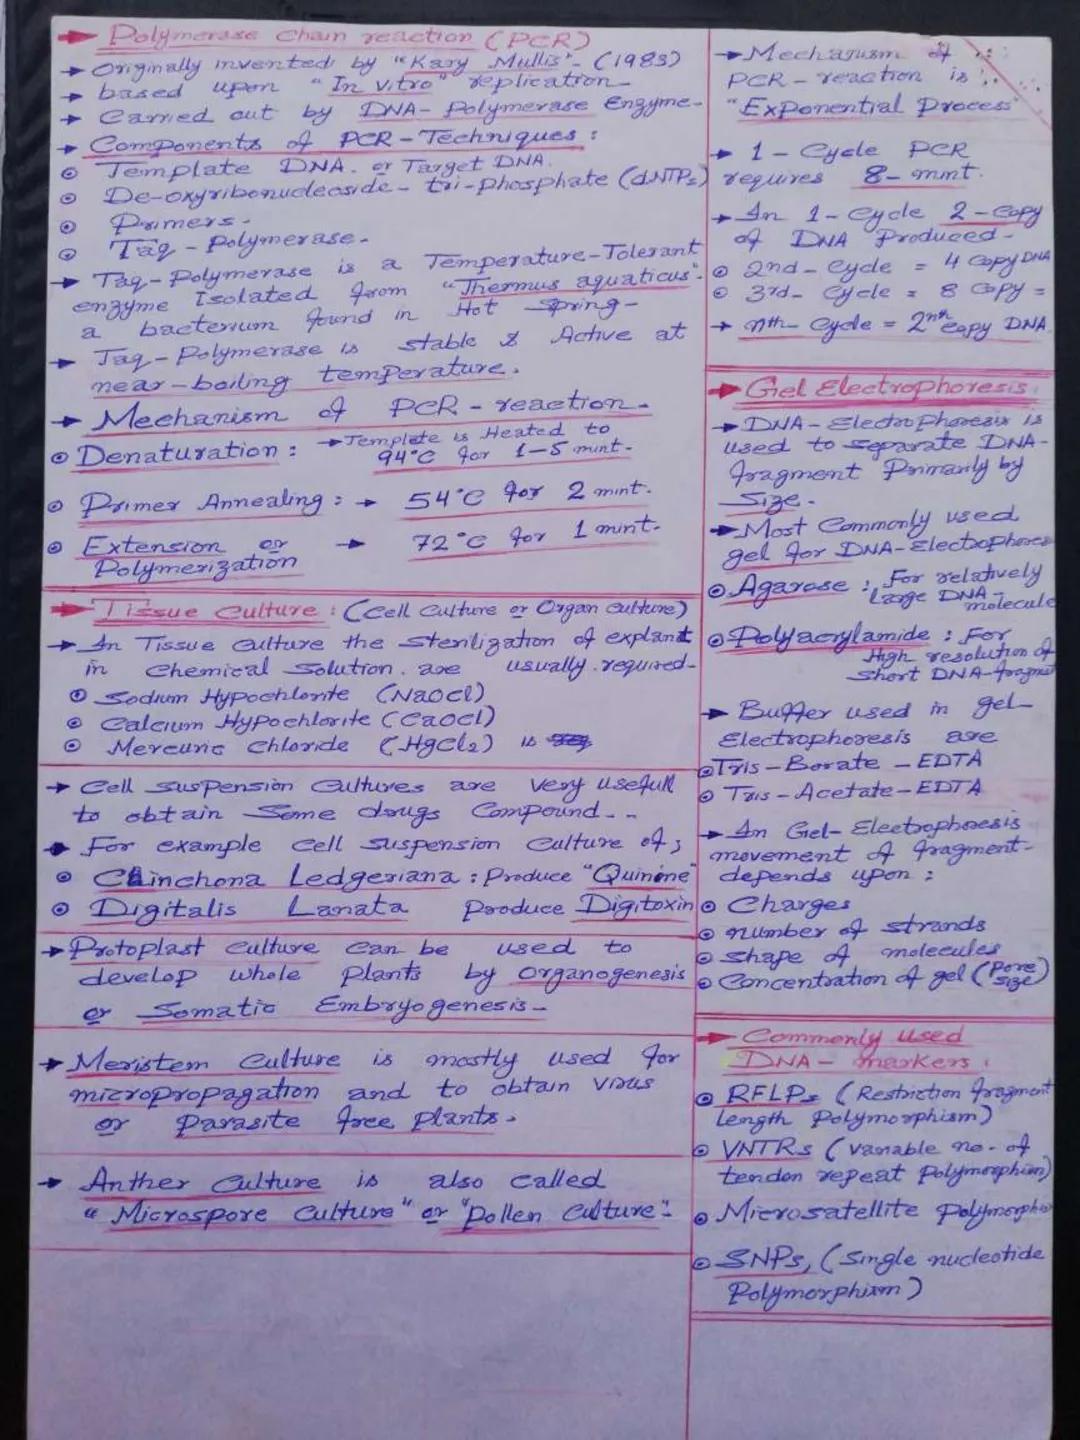 Polymerase Chain reaction (PCR)
→ Originally invented by "Kary Mullis"- (1983)
→ based upon "In vitro" replication-
→ Carried out by DNA-Polymerase Enzyme-
→ Components of PCR-Techniques:
Template DNA. or Target DNA.
De-oxyribonucleoside-tri-phosphate (dNTPs)
Primers-
Taq-Polymerase-
→ Taq-Polymerase is a Temperature-Tolerant
enzyme Isolated from "Thermus aquaticus"-
a bacterium found in Hot Spring-
→ Taq-Polymerase is stable & Active at
near-boiling temperature.
→ Mechanism of PCR-reaction-
Denaturation: → Template is Heated to
94°C for 1-5 mint-
Primer Annealing: → 54°C for 2 mint.
Extension or → 72°C for 1 mint-
Polymerization
Tissue Culture: (Cell Culture or Organ Culture)
→ In Tissue Culture the sterilization of explant
in chemical solution. are usually required-
Sodium Hypochlorite (NaOCl)
Calcium Hypochlorite (CaOCl)
Mercuric Chloride (HgCl2) is
→ Cell suspension Cultures are very usefull
to obtain Some drugs Compound--
→ For example Cell suspension Culture of;
Chinchona Ledgeriana: Produce "Quinine"
Digitalis Lanata Produce Digitoxin
→ Protoplast culture can be used to
develop whole plants by organogenesis
or Somatic Embryogenesis-
→ Meristem Culture is mostly used for
micropropagation and to obtain virus
or Parasite free Plants-
→ Anther Culture is also called
"Microspore Culture" or "Pollen Culture"-
→ Mechanism of
PCR-reaction is
"Exponential Process"
→ 1-Cycle PCR
requires 8-mint.
→ In 1-Cycle 2-Copy
of DNA Produced-
2nd-Cycle = 4 Copy DNA
3rd-Cycle = 8 Copy =
→ nth-Cycle = 2nth copy DNA.
Gel Electrophoresis:
→ DNA-Electrophoresis is
used to separate DNA-
fragment Primarily by
Size-
→ Most Commonly used
gel for DNA-Electrophores
Agarose: For relatively
Large DNA-
molecule
Polyacrylamide: For
High resolution of
Short DNA-fragmet
→ Buffer used in gel-
Electrophoresis are
Tris-Borate-EDTA
Tris-Acetate-EDTA
→ In Gel-Electrophoresis
movement of fragment-
depends upon:
Charges
number of strands
shape of molecules
Concentration of gel (Pore size)
Commonly used
DNA-markers:
RFLPs (Restriction fragment
Length Polymorphism)
VNTRs (Variable no. of
tenden repeat Polymorphism)
Microsatellite Polymorphis
SNPs, (Single nucleotide
Polymorphism)